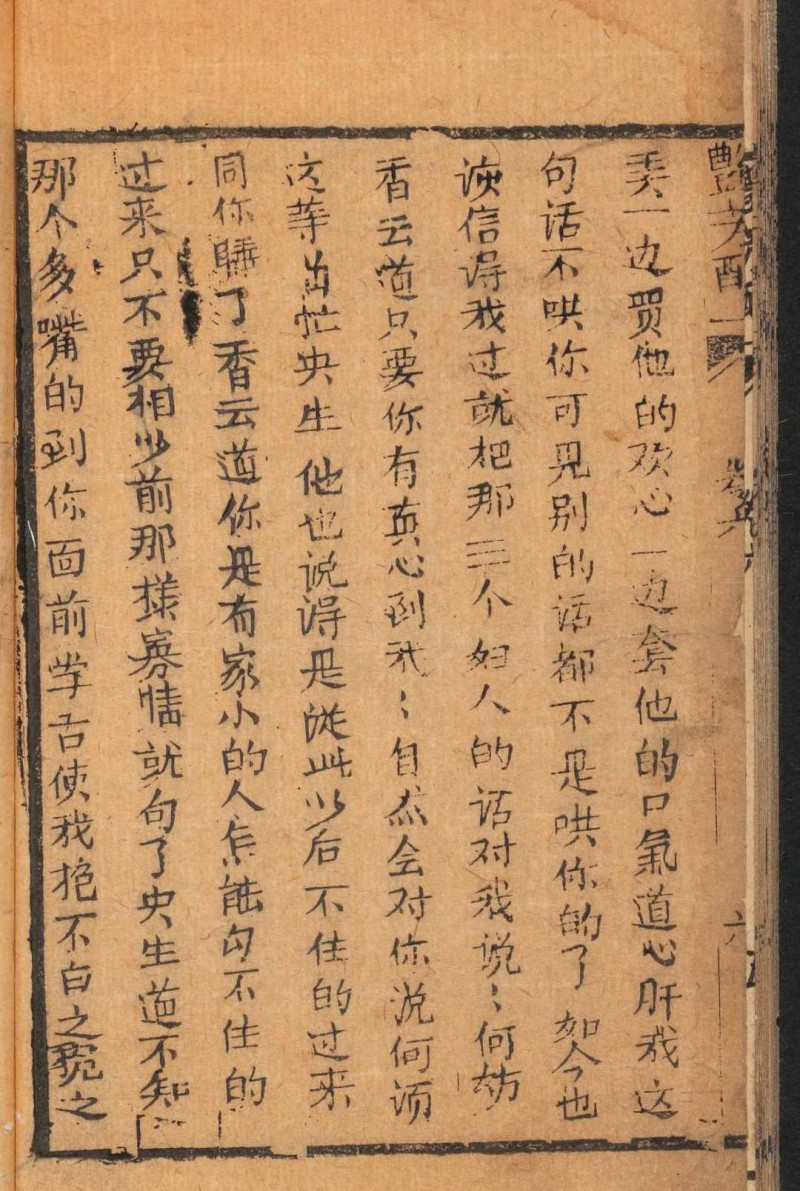 弄一边买他的欢心一边套他的口氣道心肝我这
句话不哄你可見别的话都不是哄你的了如今也
该信得我过就把那三个妇人的话对我说〻何妨
香云道只要你有真心到我〻自然会对你说何须
这等着忙央生他也说得是從此以后不住的过来
同你睡了香云道你是有家小的人怎能勾不住的
过来只不要相以前那樣寡情就句了央生道不知
那个多嘴的到你面前学舌使我抱不白之冤之
艷芙配 卷九 六